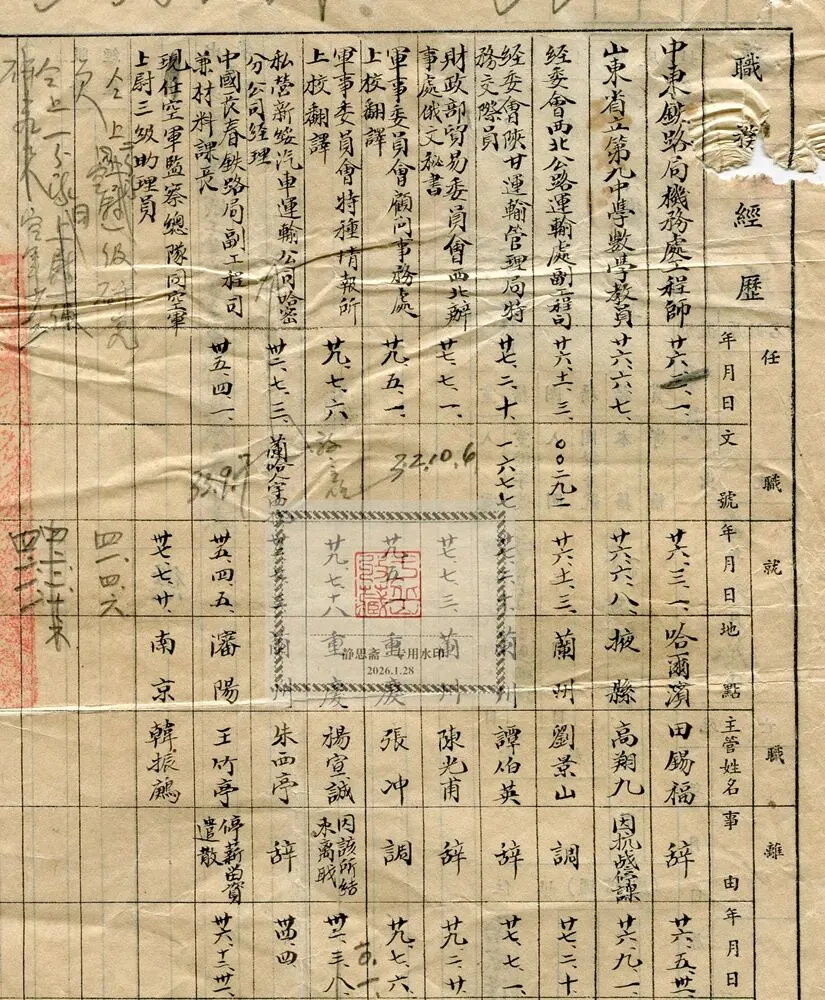 職務經歷
任職
年月日
文號
就職
年月日
地點
主管姓名
離
事由
年月日
中東鉄路局機務處工程師
廿六、二、一、
廿六、三、一、
哈爾濱
田錫福
辞
廿六、五、卅一、
山東省立第九中學數學教員
廿六、六、七、
廿六、六、八、
掖縣
高翔九
因抗战停課
廿六、九、一、
經委會西北公路運輸處副工程司
廿六、土、三、
〇〇二九二
廿六、土、三、
蘭州
劉景山
調
廿七、二、十、
經委會陝甘運輸管理局特
務交際員
廿七、二、十、
一六七七
廿七、二、十、
蘭州
譚伯英
辞
廿七、七、一、
財政部貿易委員會西北辦
事處俄文秘書
廿七、七、一、
廿七、七、三、
蘭州
陳光甫
辞
廿九、二、廿、
軍事委員會顧問事務處
上校翻譯
廿九、五、一、
32.10.6
廿九、五、一
重慶
張冲
調
廿九、七、六、
軍事委員會特種情報所
上校翻譯
廿九、七、六
廿九、七、八
重慶
楊宣誠
因該所結
束离戝
卅二、三、八、
私營新綏汽車運輸公司哈密
分公司經理
卅二、七、三、
蘭州
朱西亭
辞
卅四、四、
中國長春鉄路局副工程司
兼材料課長
卅五、四、一、
33.9.7
卅五、四、五、
瀋陽
王竹亭
停薪畄資
遣散
卅六、十二、卅一、
現任空軍監察總隊同空軍
上尉三級助理員
卅七、七、廿、
南京
韓振鷹
四一、四、六
靜思齋 专用水印
2026.1.28